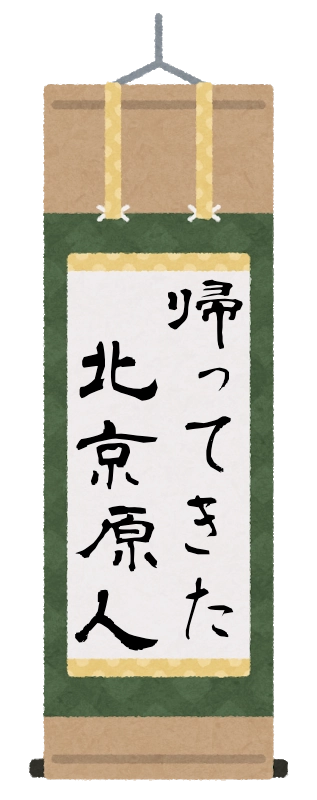 帰ってきた
北京原人